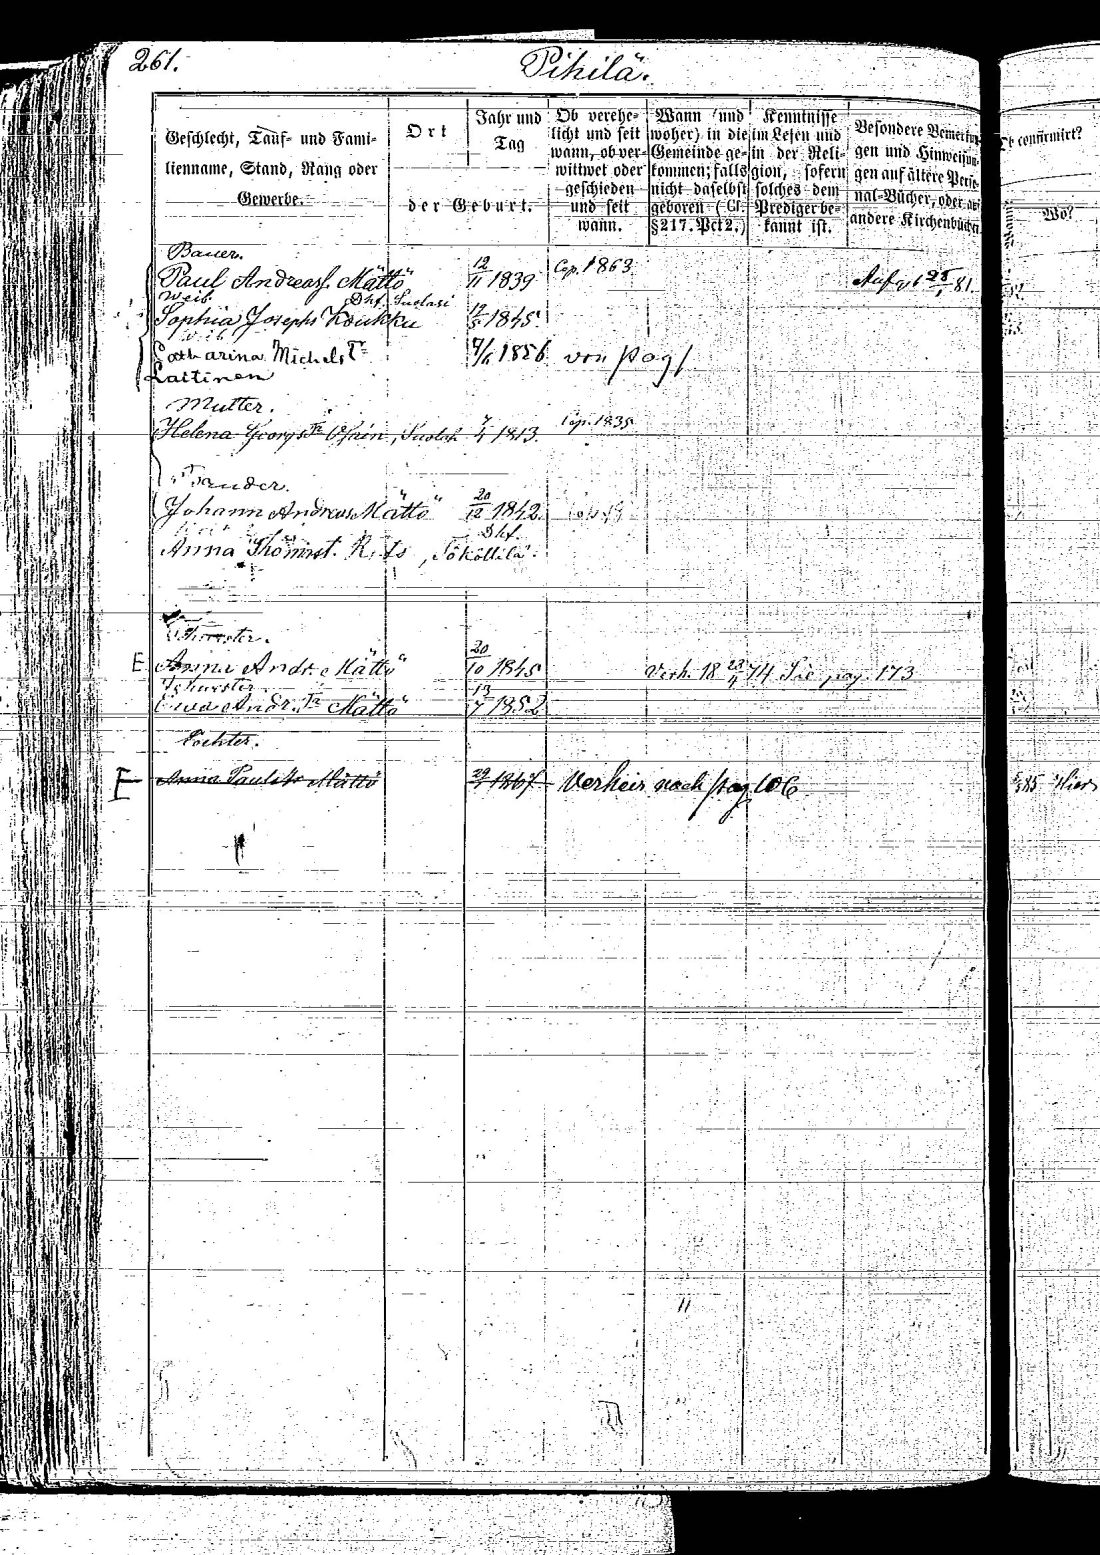 261.
Pihilä.
Geschlecht, Tauf- und Fami-
lienname, Stand, Rang oder
Gewerbe.
Ort
Jahr und
Tag
der Geburt.
Ob verehe-
licht und seit
wann, ob ver-
wittwet oder
geschieden
und seit
wann.
Wann (und
woher) in die
Gemeinde ge-
kommen; falls
nicht daselbst
geboren (Cf.
§217. Pct 2.)
Kenntnisse
im Lesen und
in der Reli-
gion, sofern
solches dem
Prediger be-
kannt ist.
Besondere Bemerkun-
gen und Hinweisun-
gen auf ältere Perso-
nal-Bücher, oder auf
andere Kirchenbücher.
confirmirt?
Wann
Wo?
Bauer.
Paul Andreas. Mättö 12/11 1839 Cop. 1863. 81.
Weib. Dhf. Suolasi
Sophia Josephs Koukku 12/5 1845.
Weib
Catharina Michels Tr 1856 von pag
Laitinen
Mutter.
Helena Georgs Tr 1813. Cop. 1835
Johann Andreas Mättö 20/12 1842.
Dhf.
Anna
Schwester.
E Anna Andr. Mättö 20/10 1845 Verh. 18 74 pag. 173
Schwester
Ewa Andr. Tr Mättö 13/7 1852
Tochter.
E Anna Pauls Tr Mättö 1867 Verheir nach pag 106
85 Hier